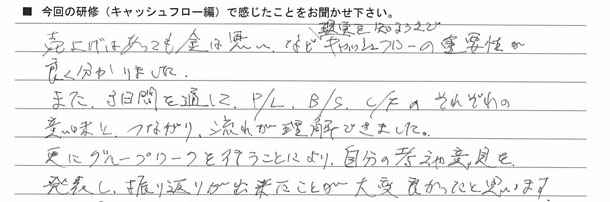 ■ 今回の研修（キャッシュフロー編）で感じたことをお聞かせ下さい。
現実を知るうえで
売上げはあっても金は無い、などキャッシュフローの重要性が
良く分かりました。
また、3日間を通して、P/L、B/S、C/Fのそれぞれの
意味と、つながり、流れが理解できました。
更にグループワークを行うことにより、自分の考えや意見を
発表し、振り返りが出来たことが大変良かったと思います